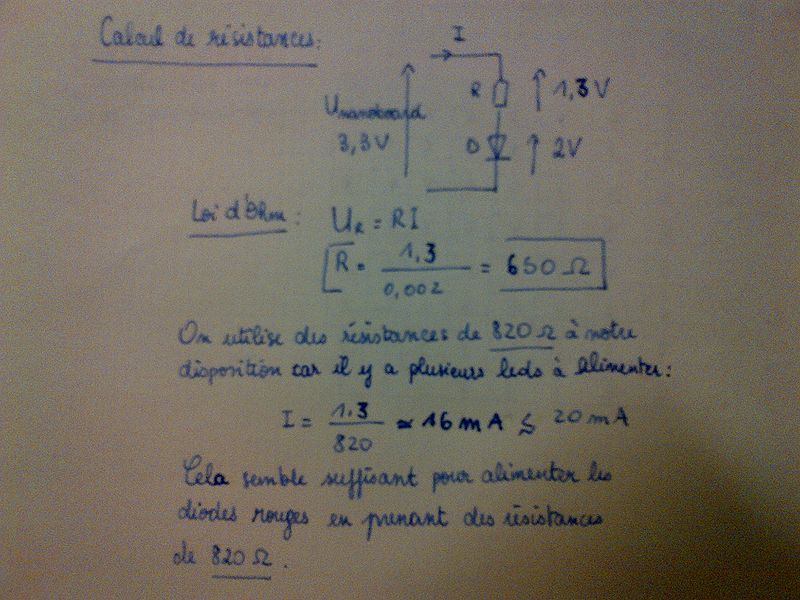 Calcul de résistances:
I
R
1,3V
Unanoboard
3,3V
D
2V
Loi d'Ohm : UR = RI
R = 1,3 / 0,002 = 650 Ω
On utilise des résistances de 820 Ω à notre
disposition car il y a plusieurs leds à alimenter :
I = 1,3 / 820 ≃ 16 mA ≤ 20 mA
Cela semble suffisant pour alimenter les
diodes rouges en prenant des résistances
de 820 Ω.